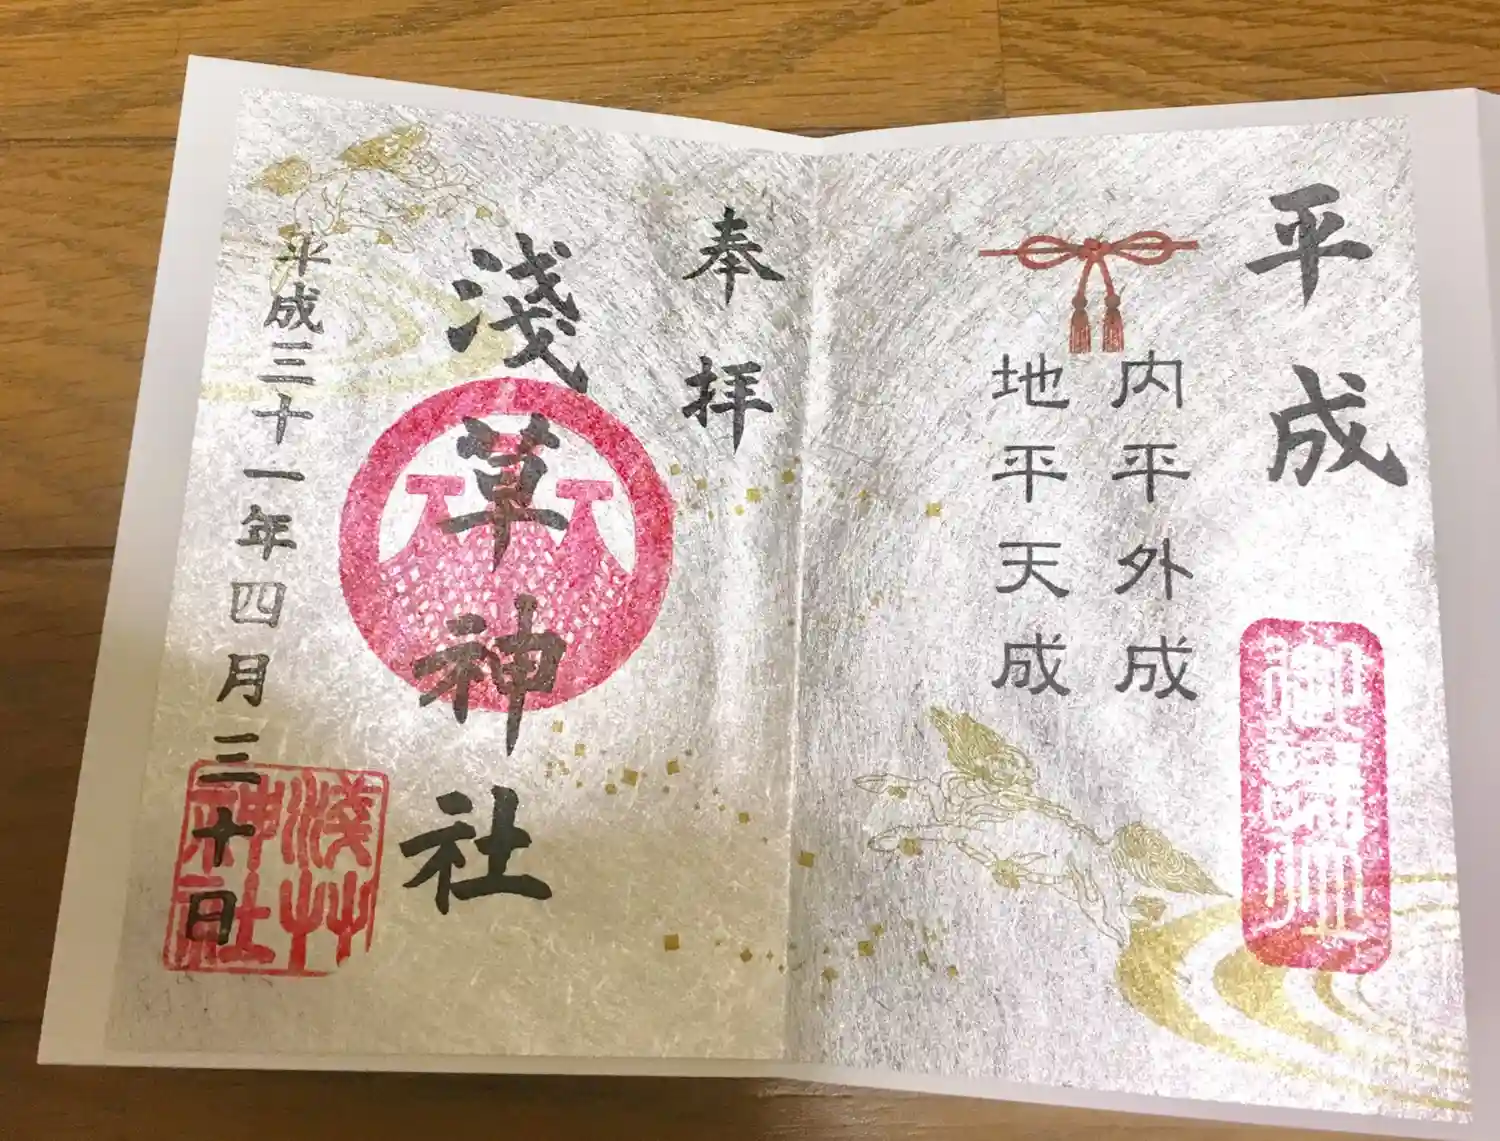 平成
内平外成
地平天成
奉拝
淺草神社
平成三十一年四月三十日
淺草神社